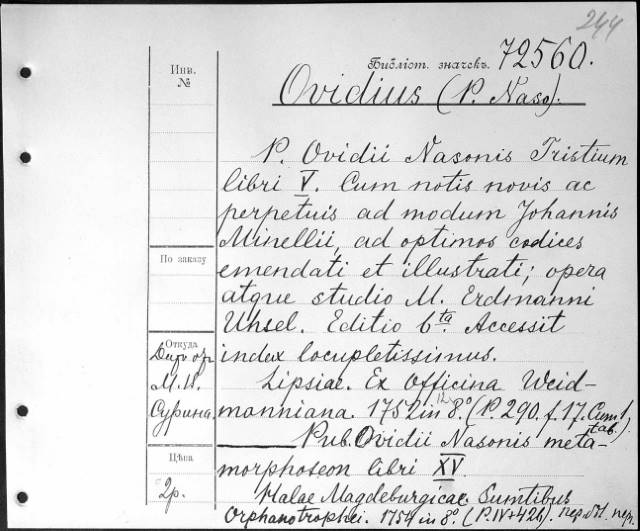 244
Библіот. значекъ. 72560.
Инв. №
Ovidius (P. Naso).
P. Ovidii Nasonis Tristium
libri V. Cum notis novis ac
perpetuis ad modum Johannis
Minellii, ad optimos codices
По заказу
emendati et illustrati; opera
atque studio M. Erdmanni
Uhsel. Editio 6ta. Accessit
Откуда
index locupletissimus.
М. И.
Сурина.
Lipsiae. Ex Officina Weid-
manniana. 1752 in 12. 8.° (P. 290. f. 17. Cum 1 tab.)
Pub. Ovidii Nasonis meta-
Цѣна
morphoseon libri XV.
2р.
Halae Magdeburgicae. Sumtibus
Orphanotrophei. 1754 in 8.° (P. IV + 426).